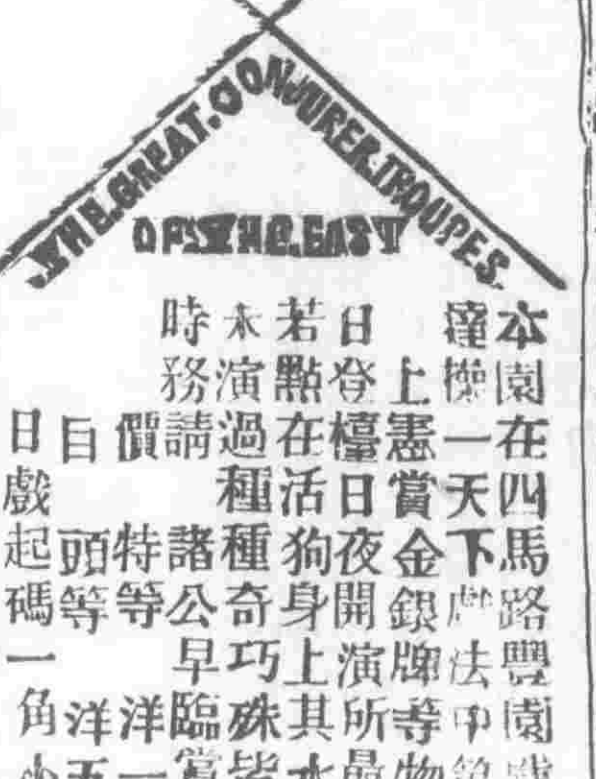 THE.GREAT.CONJURER.TROUPES.
OF THE.EAST
本園在四馬路豐園
操一天下戲法
上憲賞金銀牌等物
日登檯日夜開演所最
若點在活狗身上其水
未演過種種奇巧殊皆
時務請 諸公早臨賞
價 特等洋一
目 頭等洋五
日戲起碼一角小